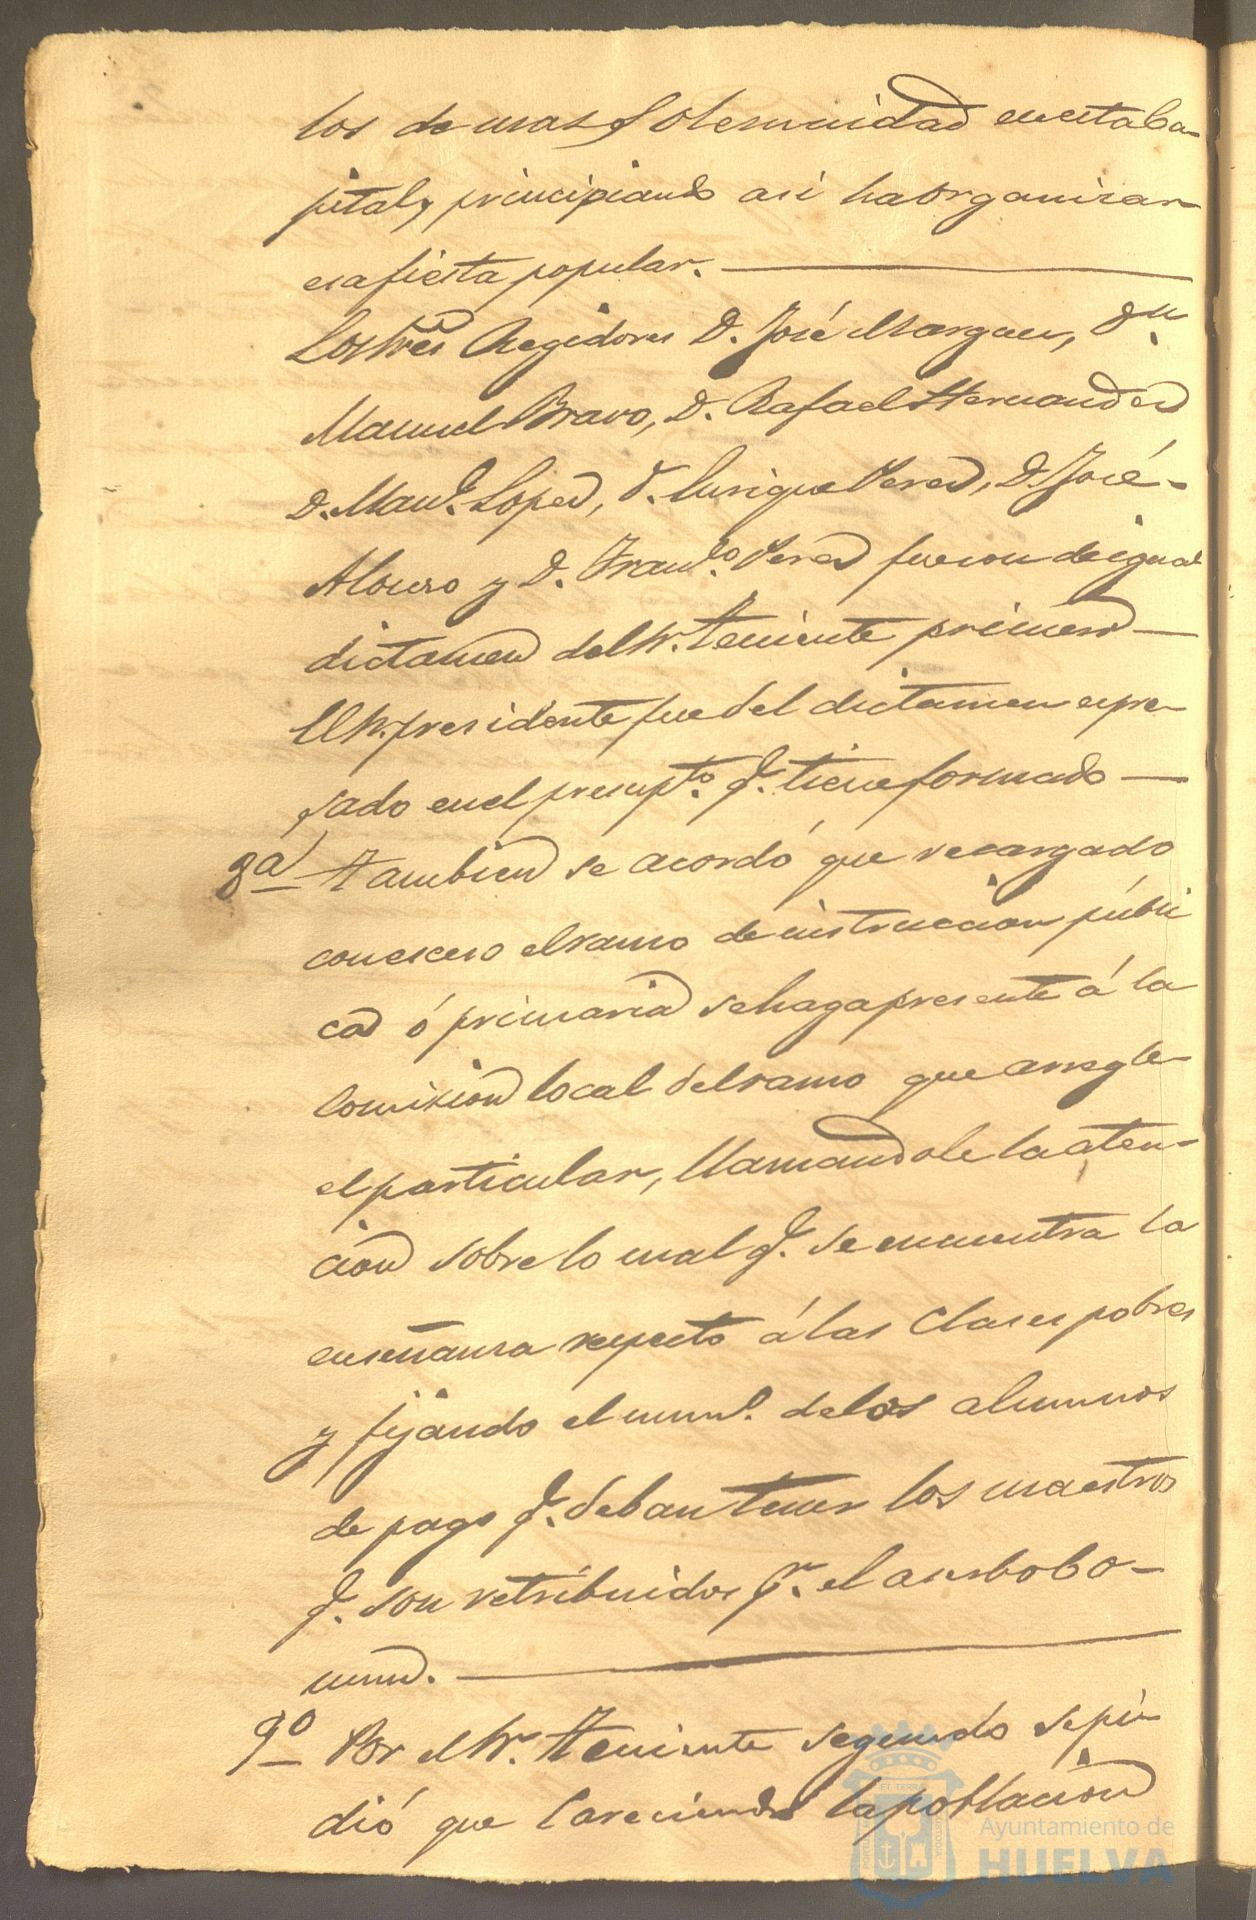 los de mas Solemnidad en esta Ca-
pital, principiando asi ha organizar
esa fiesta popular.
Los tres Regidores D. José Marquez, Dn.
Manuel Bravo, D. Rafael Hernandez
D. Manl. Lopez, D. Enrique Perez, D. José
Alonso y D. Franco. Perez fueron de igual
dictamen del Sr. Teniente primero
El Sr. presidente fue del dictamen espre
sado en el presupto. q. tiene formado
8a Tambien se acordó que recargado
con esceso el ramo de instruccion públi
ca ó primaria se haga presente á la
Comision local del ramo que arregle
el particular, llamandole la aten-
cion sobre lo mal q. se encuentra la
enseñanza respecto á las Clases pobres
y fijando el numo. de los alumnos
de pago q. deban tener los maestros
q. son retribuidos pr. el acerbo co-
mun.
9o Por el Sr. Teniente segundo se pi-
dió que Careciendo la poblacion
Ayuntamiento de
HUELVA